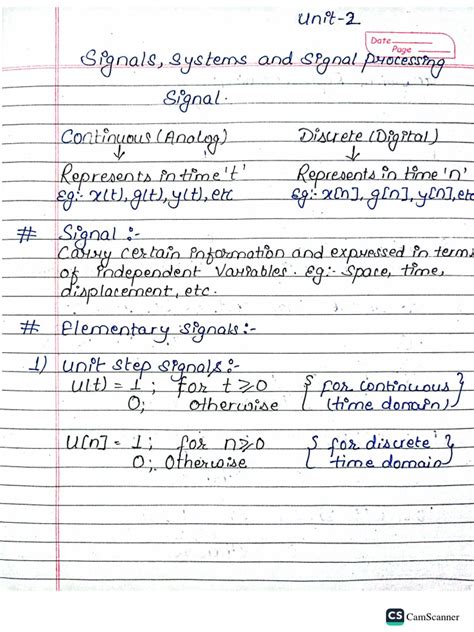 Unit-2
Date
Page
Signals, Systems and Signal Processing
Signal.
Continuous (Analog) Discrete (Digital)
↓ ↓
Represents in time 't' Represents in time 'n'
Eg:- x(t), g(t), y(t), etc Eg:- x[n], g[n], y[n], etc
# Signal :-
Carry certain information and expressed in terms
of independent variables. Eg:- Space, time,
displacement, etc.
# Elementary signals:-
1) Unit step signals:-
u(t) = 1 ; for t ≥ 0 { for continuous }
0; otherwise { (time domain) }
U[n] = 1 ; for n ≥ 0 { for discrete }
0; Otherwise { time domain }
CS CamScanner